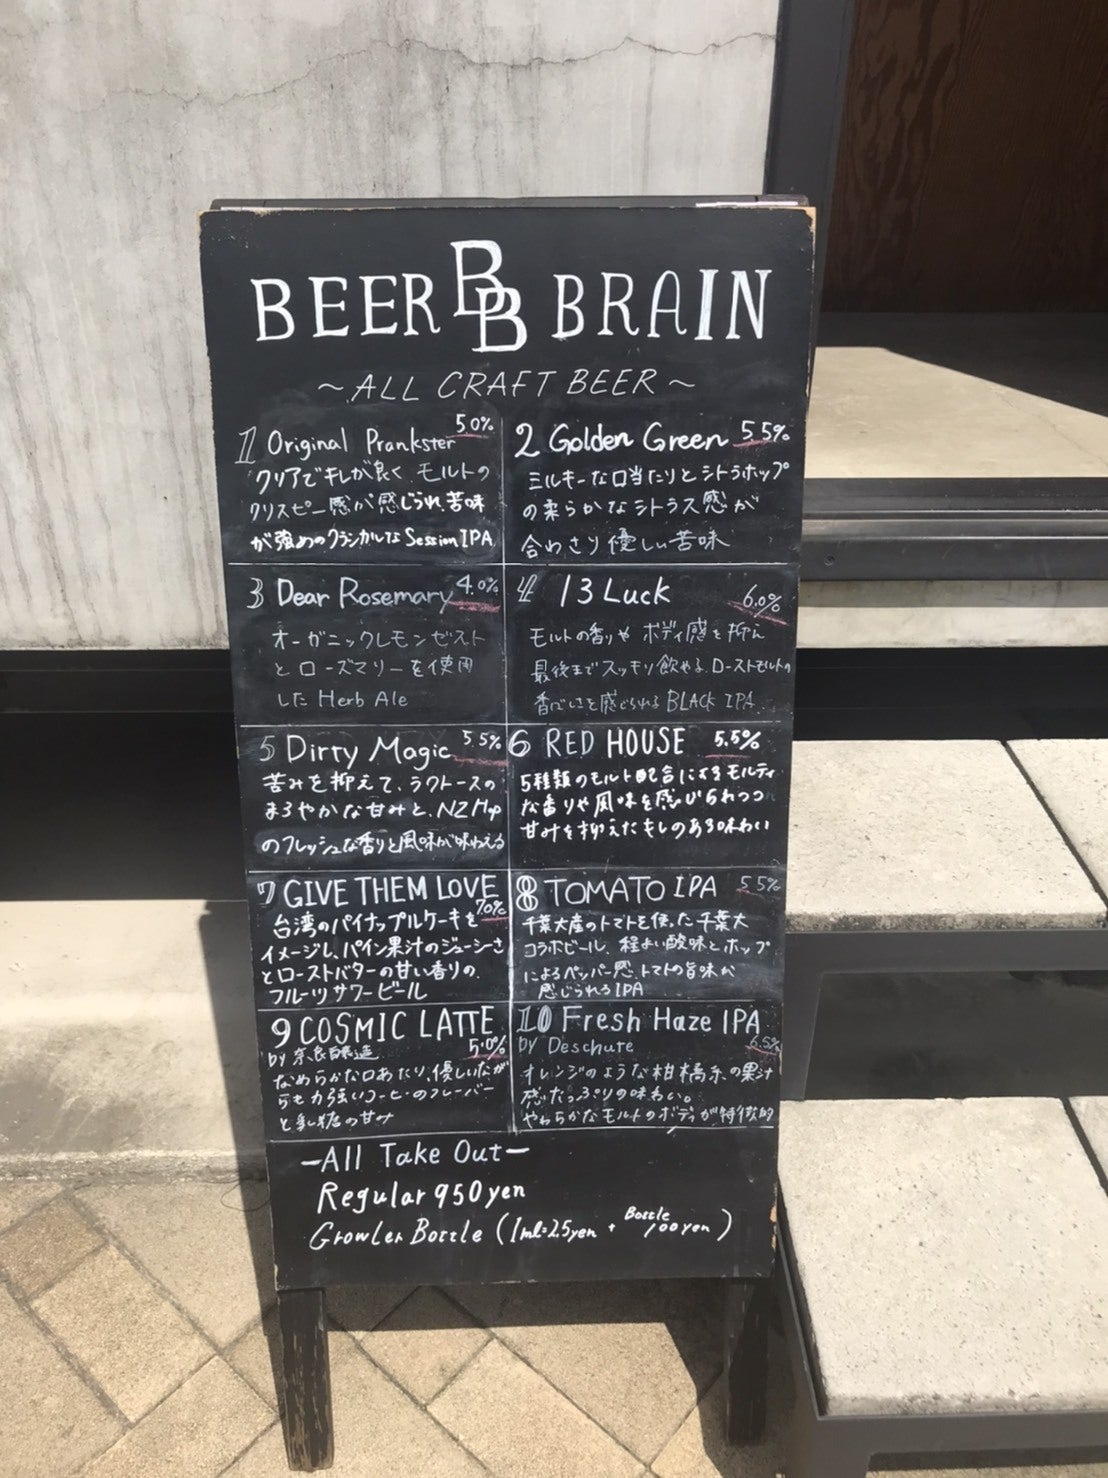 BEER BB BRAIN
~ALL CRAFT BEER~
1 Original Prankster 5.0%
クリアでキレが良く モルトの
クリスピー感が感じられ、苦味
が強めのクラシカルなSession IPA
2 Golden Green 5.5%
ミルキーな口当たりとシトラホップ
の柔らかなシトラス感が
合わさり優しい苦味
3 Dear Rosemary 4.0%
オーガニックレモンゼスト
とローズマリーを使用
した Herb Ale
4 13 Luck 6.0%
モルトの香りや ボディ感を抑え
最後までスッキリ飲める、ローストモルトの
香ばしさを感じられる BLACK IPA
5 Dirty Magic 5.5%
苦みを抑えて、ラクトースの
まろやかな甘みと、NZ Hop
のフレッシュな香りと風味が味わえる
6 RED HOUSE 5.5%
5種類のモルト配合によるモルティ
な香りや風味を感じられつつ
甘みを抑えたキレのある味わい
7 GIVE THEM LOVE 7.0%
台湾のパイナップルケーキを
イメージし、パイン果汁のジューシーさ
とローストバターの甘い香りの、
フルーツサワービール
8 TOMATO IPA 5.5%
千葉大産のトマトを使った千葉大
コラボビール、程よい酸味とホップ
によるペッパー感、トマトの旨味が
感じられるIPA
9 COSMIC LATTE 5.0%
by 奈良醸造
なめらかな口あたり、優しいなが
らも力強いコーヒーのフレーバー
と乳糖の甘み
10 Fresh Haze IPA
by Deschute 6.5%
オレンジのような柑橘系の果汁
感たっぷりの味わい。
やわらかなモルトのボディが特徴的
-All Take Out-
Regular 950yen
Growler Bottle (1ml=2.5yen + Bottle 100yen)